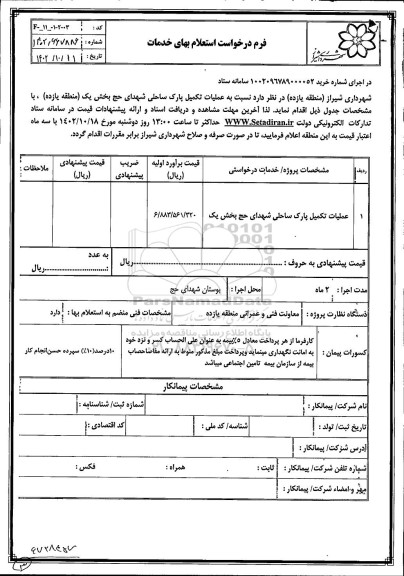 فرم درخواست استعلام بهای خدمات
کد : F-۱۱-۰۱-۲۰۰۳
شماره :
تاریخ : ۱۴۰۲/۱۰/۱۱
در اجرای شماره خرید ۱۰۰۲۰۹۶۷۸۹۰۰۰۰۵۲ سامانه ستاد
شهرداری شیراز (منطقه یازده) در نظر دارد نسبت به عملیات تکمیل پارک ساحلی شهدای حج بخش یک (منطقه یازده) ، با
مشخصات جدول ذیل اقدام نماید. لذا آخرین مهلت مشاهده و دریافت اسناد و ارائه پیشنهادات قیمت در سامانه ستاد
تدارکات الکترونیکی دولت WWW.Setadiran.ir حداکثر تا ساعت ۱۳:۰۰ روز دوشنبه مورخ ۱۴۰۲/۱۰/۱۸ با سه ماه
اعتبار قیمت به این منطقه اعلام فرمایید، تا در صورت صرفه و صلاح شهرداری شیراز برابر مقررات اقدام گردد.
ردیف
مشخصات پروژه/ خدمات درخواستی
قیمت برآورد اولیه (ریال)
ضریب پیشنهادی
قیمت پیشنهادی (ریال)
ملاحظات :
۱
عملیات تکمیل پارک ساحلی شهدای حج بخش یک
۶/۸۸۳/۵۶۱/۳۲۰
قیمت پیشنهادی به حروف : ......ریال
به عدد :......ریال
مدت اجرا : ۲ ماه
محل اجرا : بوستان شهدای حج
دستگاه نظارت پروژه : معاونت فنی و عمرانی منطقه یازده
مشخصات فنی منضم به استعلام بها : دارد
کسورات پیمان :
کارفرما از هر پرداخت معادل ۵٪بیمه به عنوان علی الحساب کسر و نزد خود
به امانت نگهداری مینماید وپرداخت مبلغ مذکور منوط به ارائه مفاصاحساب
بیمه از سازمان بیمه تامین اجتماعی میباشد
۱۰درصد(۱۰٪) سپرده حسن‌انجام کار
مشخصات پیمانکار
نام شرکت/ پیمانکار :
شماره ثبت/ شناسنامه :
تاریخ ثبت/ تولد :
شناسه/ کد ملی :
کد اقتصادی :
آدرس شرکت/ پیمانکار :
شماره تلفن شرکت/ پیمانکار :
ثابت :
همراه :
فکس :
مهر و امضاء شرکت/ پیمانکار :
ParsNamadData
پایگاه اطلاع رسانی مناقصه و مزایده